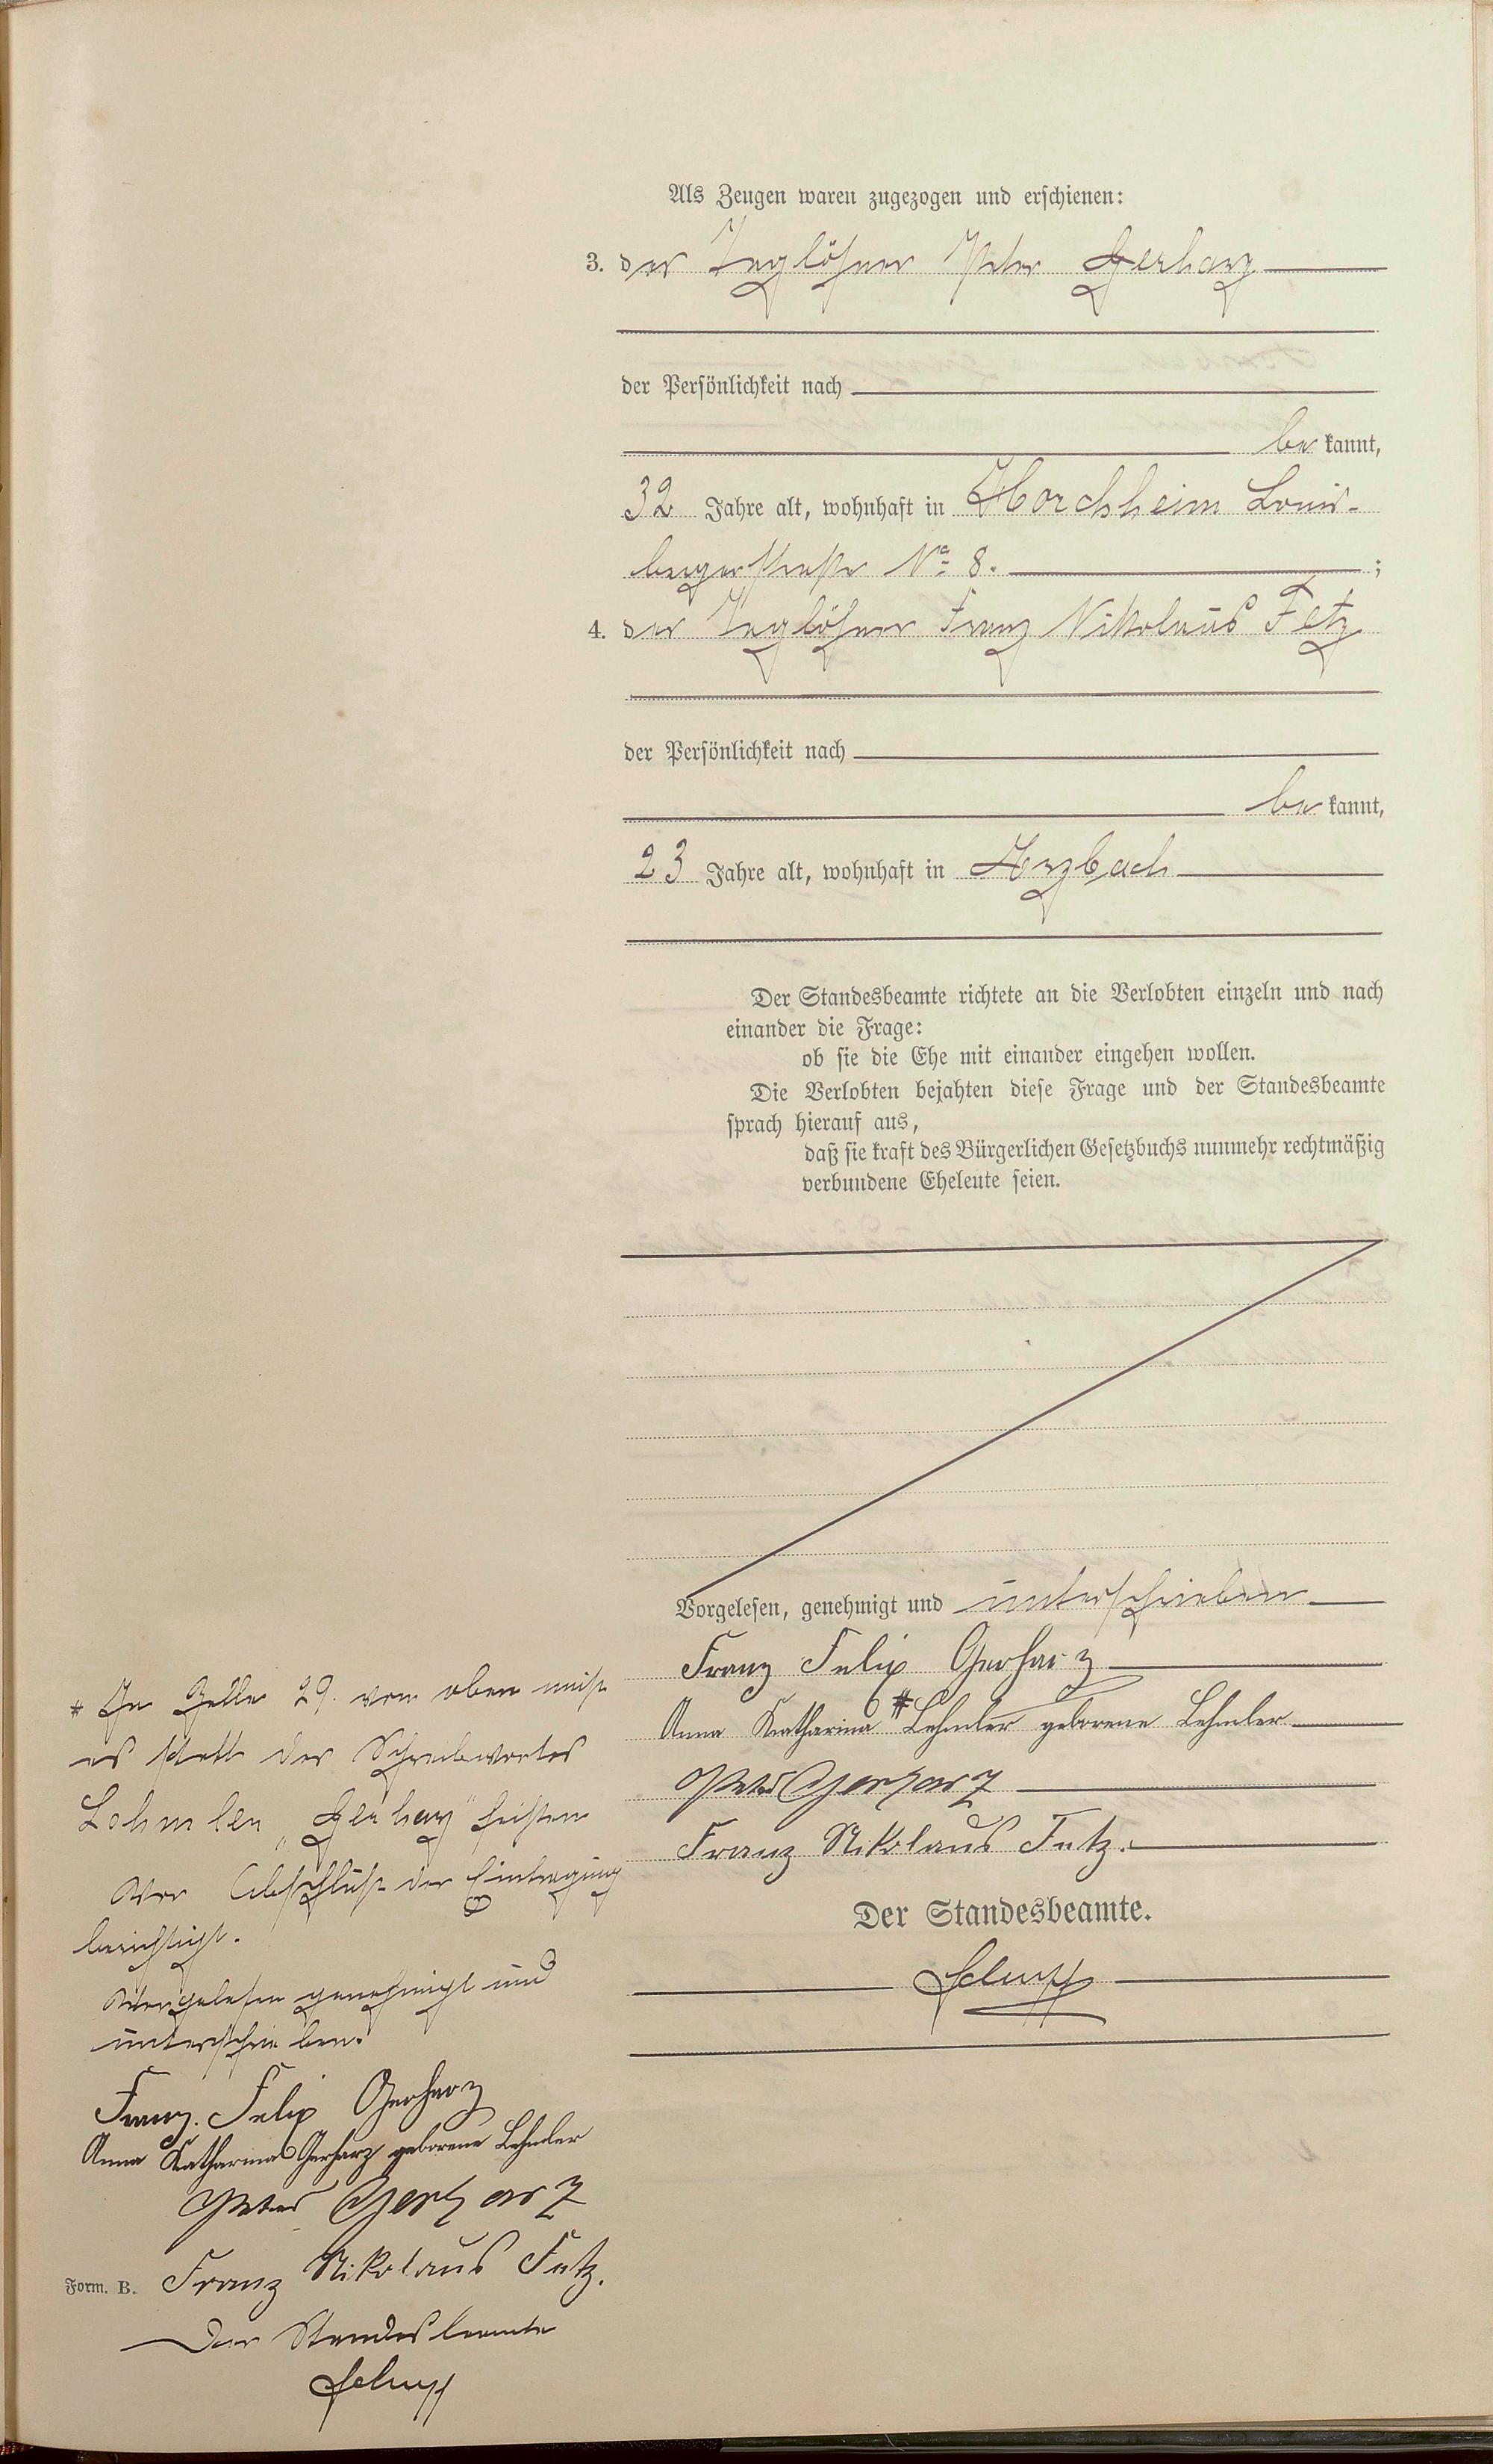 Als Zeugen waren zugezogen und erschienen:
3. der Taglöhner Peter Gerharz
der Persönlichkeit nach
be kannt,
32 Jahre alt, wohnhaft in Horchheim Louis-
bergerstraße No 8. ;
4. der Taglöhner Franz Nikolaus Fetz
der Persönlichkeit nach
be kannt,
23 Jahre alt, wohnhaft in Arzbach
Der Standesbeamte richtete an die Verlobten einzeln und nach
einander die Frage:
ob sie die Ehe mit einander eingehen wollen.
Die Verlobten bejahten diese Frage und der Standesbeamte
sprach hierauf aus,
daß sie kraft des Bürgerlichen Gesetzbuchs nunmehr rechtmäßig
verbundene Eheleute seien.
Vorgelesen, genehmigt und unterschrieben
Franz Felix Gerharz
Anna Katharina * Lehmler geborene Lehmler
Peter Gerharz
Franz Nikolaus Fetz.
Der Standesbeamte.
* In Zeile 29. von oben muß
es statt des Schreibwortes
Lehmler „Gerharz" heißen
Vor Abschluß der Eintragung
berichtigt.
Vorgelesen genehmigt und
unterschrieben.
Franz. Felix Gerharz
Anna Katharina Gerharz geborene Lehmler
Peter Gerharz
Franz Nikolaus Fetz.
Form. B.
Der Standesbeamte